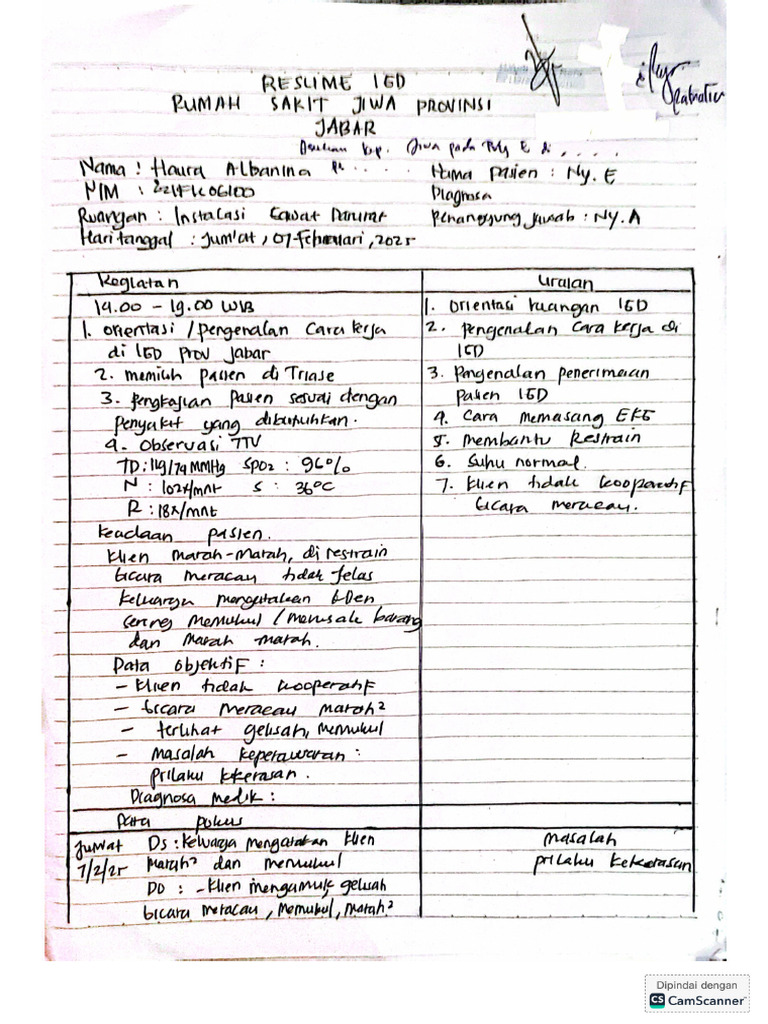 RESUME IGD
RUMAH SAKIT JIWA PROVINSI
JABAR
Asuhan kep. Jiwa pada Ny E di . . . . .
Nama : Haura Albanina
Nama Pasien : Ny. E
NIM : 221FK06100
Diagnosa
Ruangan : Instalasi Gawat Darurat
Penanggung Jawab : Ny. A
Hari tanggal : Jum'at, 07-Februari, 2025
Kegiatan
Uraian
14.00 – 19.00 WIB
1. Orientasi / pengenalan cara kerja
di IGD Prov Jabar
2. memilih pasien di Triase
3. Pengkajian Pasien sesuai dengan
Penyakit yang dibutuhkan.
4. Observasi TTV
TD : 119/79 MMHg SPO2 : 96%
N : 102x/mnt S : 36°C
R : 18x/mnt
1. Orientasi ruangan IGD
2. Pengenalan cara kerja di
IGD
3. Pengenalan penerimaan
Pasien IGD
4. Cara memasang EKG
5. Membantu Restrain
6. Suhu normal.
7. Klien tidak kooperatif
bicara meracau.
Keadaan pasien.
Klien marah-marah, di restrain
bicara meracau tidak jelas
keluarga mengatakan klien
sering memukul / merusak barang
dan marah marah.
Data objektif :
– Klien tidak kooperatif
– bicara meracau marah²
– terlihat gelisah, memukul
– masalah keperawatan :
prilaku kekerasan.
Diagnosa medik :
Data pokus
Jum'at
7/2/25
DS : Keluarga mengatakan klien
marah² dan memukul
DO : – Klien mengamuk gelisah
bicara meracau, memukul, marah²
masalah
prilaku kekerasan
Dipindai dengan
CS CamScanner